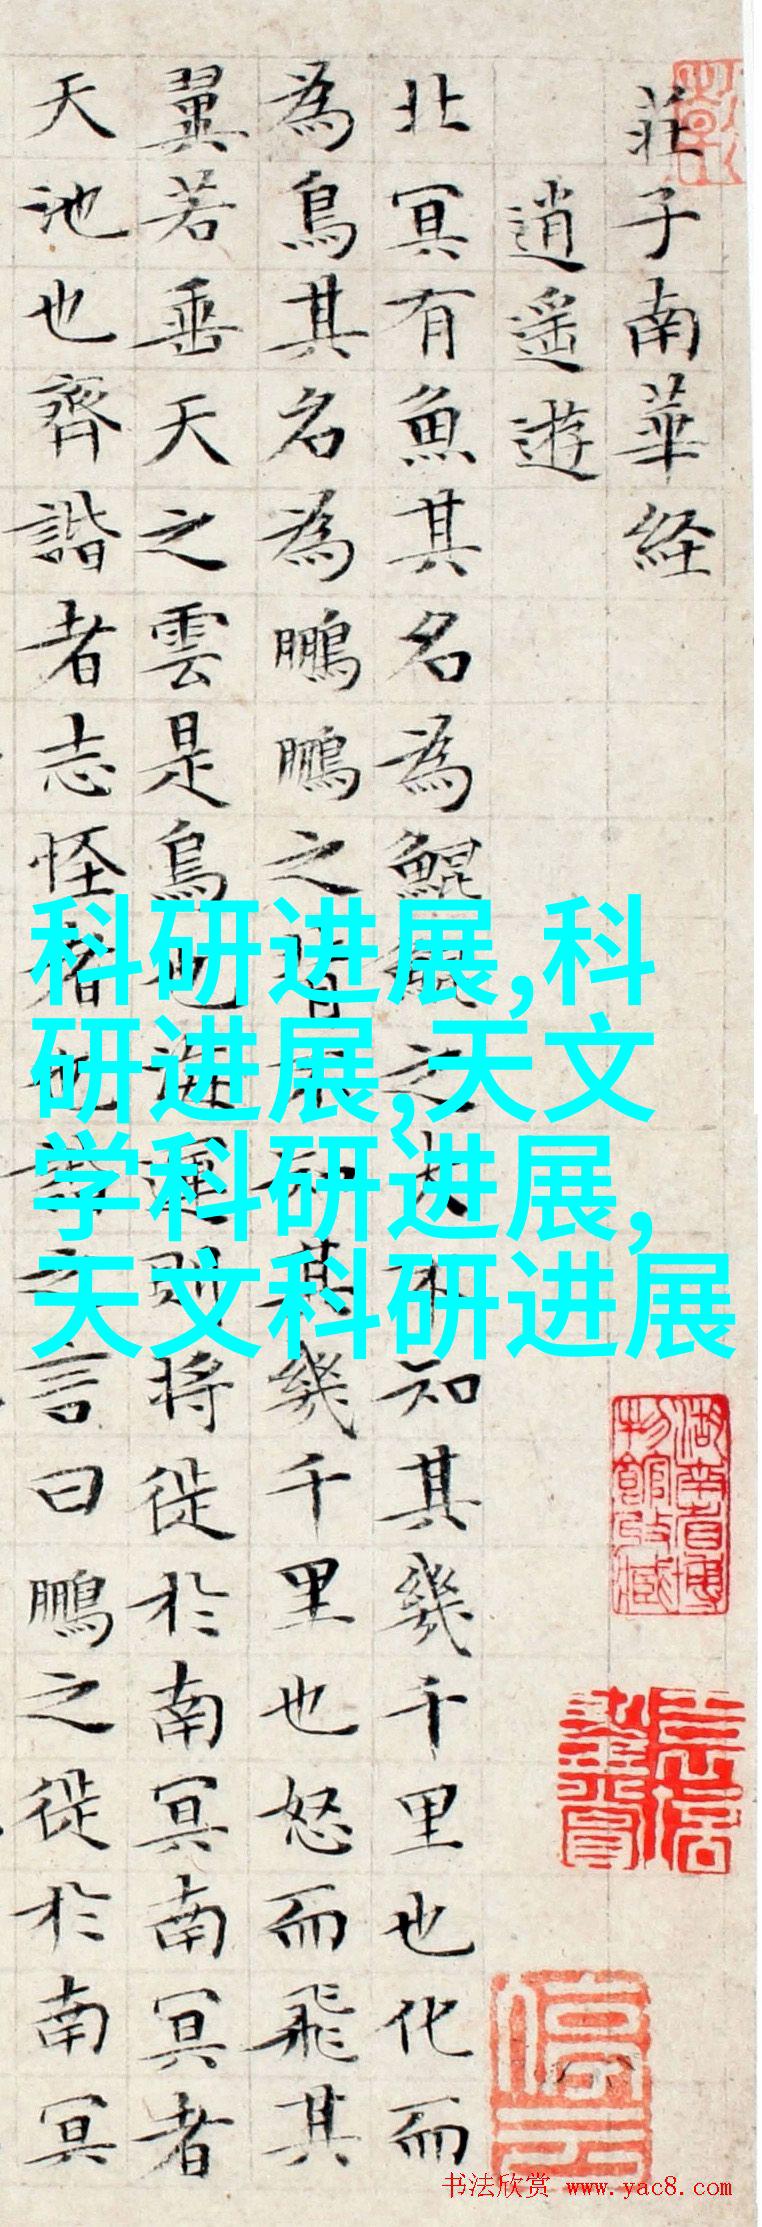 莊子南華経
逍遥遊
北冥有魚其名為鯤鯤之大不知其幾千里也化而
為鳥其名為鵬鵬之背不知其幾千里也怒而飛其
翼若垂天之雲是鳥也海運則将徙於南冥南冥者
天池也齊諧者志怪者也諧之言曰鵬之徙於南冥
科研进展,科
研进展,天文
学科研进展,
天文科研进展
湖南省博
物館收藏
书法欣赏 www.yac8.com